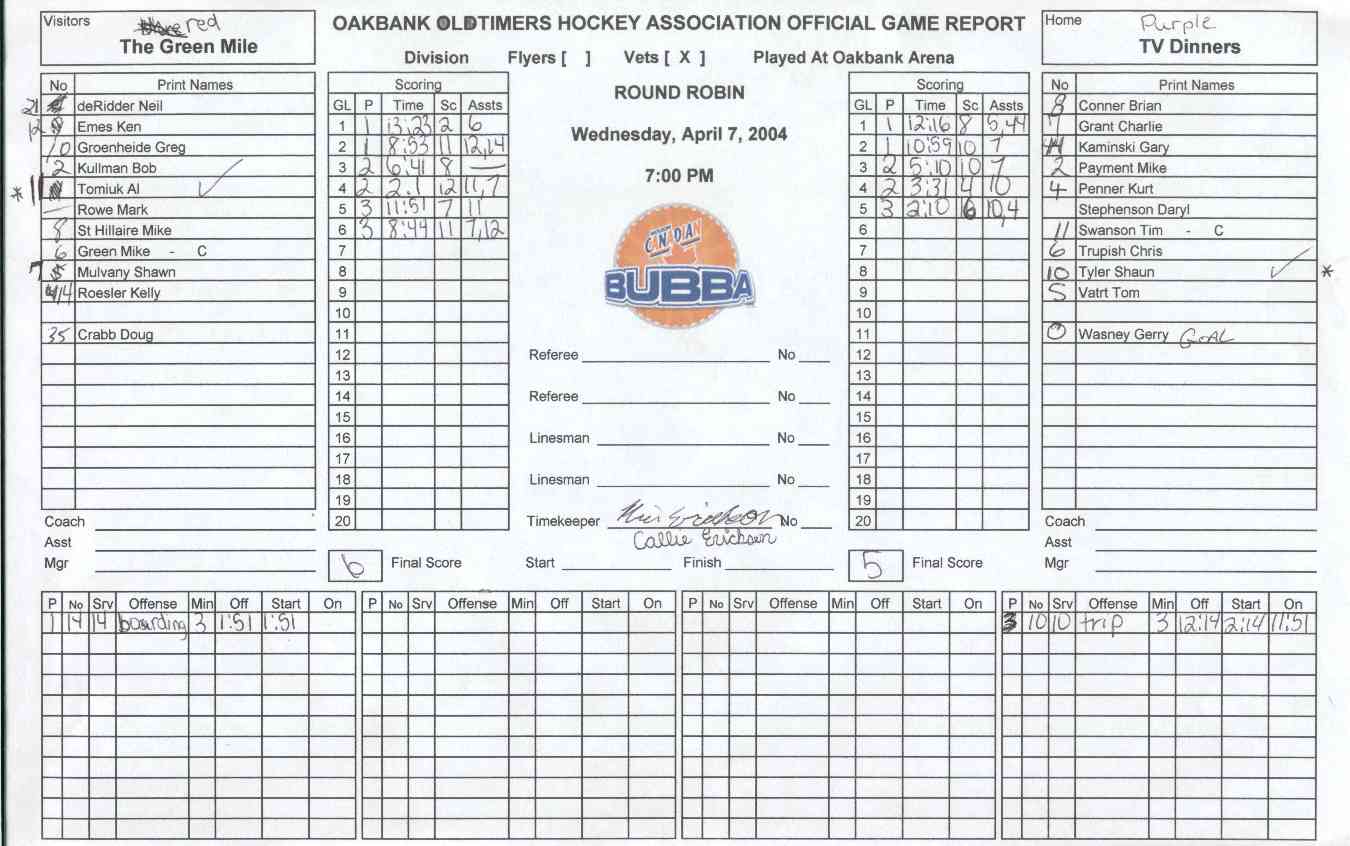 Visitors red
The Green Mile
OAKBANK OLDTIMERS HOCKEY ASSOCIATION OFFICIAL GAME REPORT
Division Flyers [ ] Vets [ X ] Played At Oakbank Arena
Home Purple
TV Dinners
No Print Names
21 deRidder Neil
12 Emes Ken
10 Groenheide Greg
2 Kullman Bob
* 11 Tomiuk Al ✓
— Rowe Mark
8 St Hillaire Mike
6 Green Mike - C
7 Mulvany Shawn
14 Roesler Kelly
35 Crabb Doug
Coach
Asst
Mgr
Scoring
GL P Time Sc Assts
1 1 13:23 2 6
2 1 8:53 11 12,14
3 2 6:41 8 —
4 2 2.1 12 11,7
5 3 11:51 7 11
6 3 8:44 11 7,12
7
8
9
10
11
12
13
14
15
16
17
18
19
20
6 Final Score
ROUND ROBIN
Wednesday, April 7, 2004
7:00 PM
CANADA
BUBBA
Referee No
Referee No
Linesman No
Linesman No
Timekeeper No
Callie Erickson
Start Finish
Scoring
GL P Time Sc Assts
1 1 12:16 8 5,44
2 1 10:59 10 7
3 2 5:10 10 7
4 2 3:31 4 10
5 3 2:10 6 10,4
6
7
8
9
10
11
12
13
14
15
16
17
18
19
20
5 Final Score
No Print Names
8 Conner Brian
7 Grant Charlie
44 Kaminski Gary
2 Payment Mike
4 Penner Kurt
Stephenson Daryl
11 Swanson Tim - C
6 Trupish Chris
10 Tyler Shaun ✓ *
5 Vatrt Tom
0 Wasney Gerry GOAL
Coach
Asst
Mgr
P No Srv Offense Min Off Start On
1 14 14 boarding 3 1:51 1:51
P No Srv Offense Min Off Start On
P No Srv Offense Min Off Start On
P No Srv Offense Min Off Start On
3 10 10 trip 3 12:14 2:14 11:51